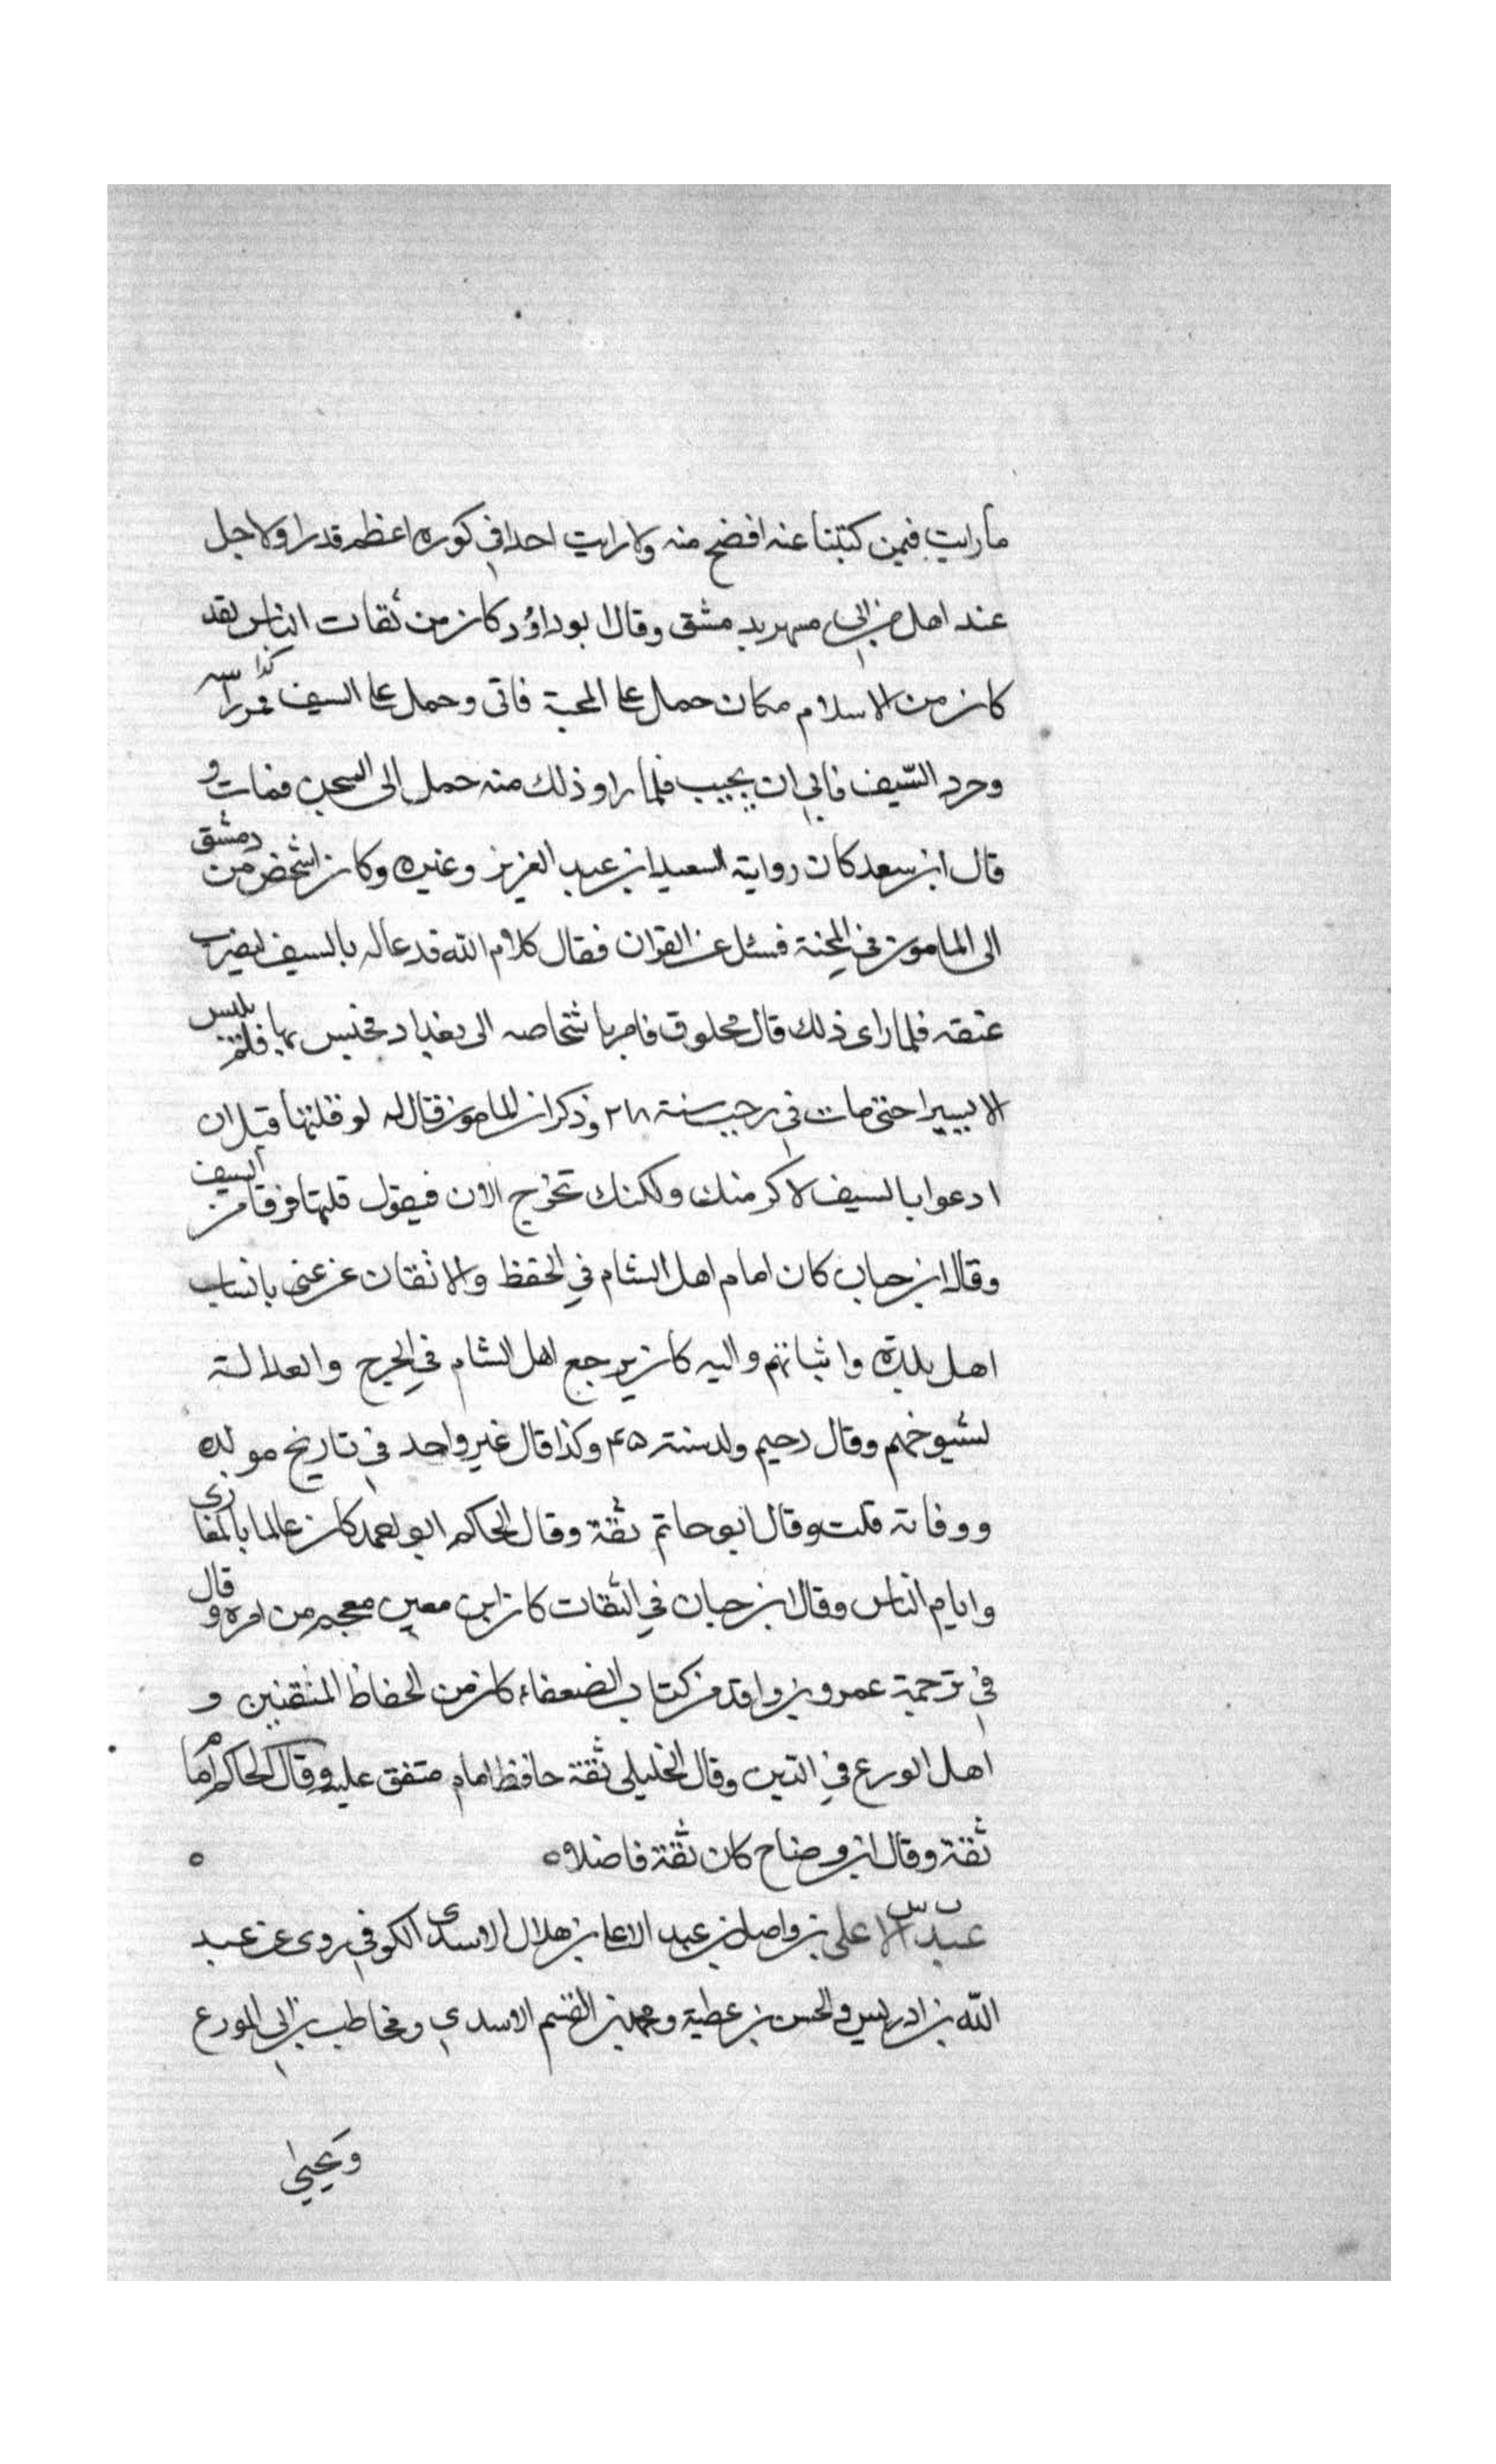 ما رايت فيمن كتبنا عنه افصح منه ولا رايت احدا في كوره اعظم قدرا ولا اجل
عند اهل من ابي مسهر بدمشق وقال ابو داؤد كان من ثقات الناس لقد
كان من الاسلام مكان حمل على المحبة فاتى وحمل على السيف كذا
وجرد السيف فابى ان يجيب فلما راو ذلك منه حمل الى السجن فمات و
قال ابن سعد كان رواية السعيد ابن عبد العزيز وغيره وكان اشخص من دمشق
الى المامون في المحنة فسئل عن القران فقال كلام الله قد عا له بالسيف ليضرب
عنقه فلما راى ذلك قال مخلوق فامر باشخاصه الى بغداد فحبس بها فلم يلبس
الا يسيرا حتى مات في رجب سنة ٢١٨ وذكر ان المامون قال له لو قلتها قبل ان
ادعوا بالسيف لاكرمنك ولكنك تخرج الان فيقول قلتها فرقا من السيف
وقال ابن حبان كان امام اهل الشام في الحفظ والاتقان عن عنى بانساب
اهل بلدة وانبائهم واليه كان يرجع اهل الشام في الجرح والعدالة
لشيوخهم وقال رحيم ولد سنة ٤٥ وكذا قال غير واحد في تاريخ مولده
ووفاته قلت وقال ابو حاتم ثقة وقال الحاكم ابو احمد كان عالما بالمغازى
وايام الناس وقال ابن حبان في الثقات كان ابن معين معجبر من امره وقال
في ترجمة عمرو بن واقد من كتاب الضعفاء كان من الحفاظ المتقنين و
اهل الورع في الدين وقال الخليلي ثقة حافظ امام متفق عليه وقال الحاكم امام
ثقة وقال ابن وضاح كان ثقة فاضلا ه ه
عبد الاعلى بن واصل بن عبد الاعلى بن هلال الاسدى الكوفي روى عن عبد
الله بن ادريس والحسن بن عطية ومحمد بن القسم الاسدي ومخاطب بن ابي المورع
ويحيى